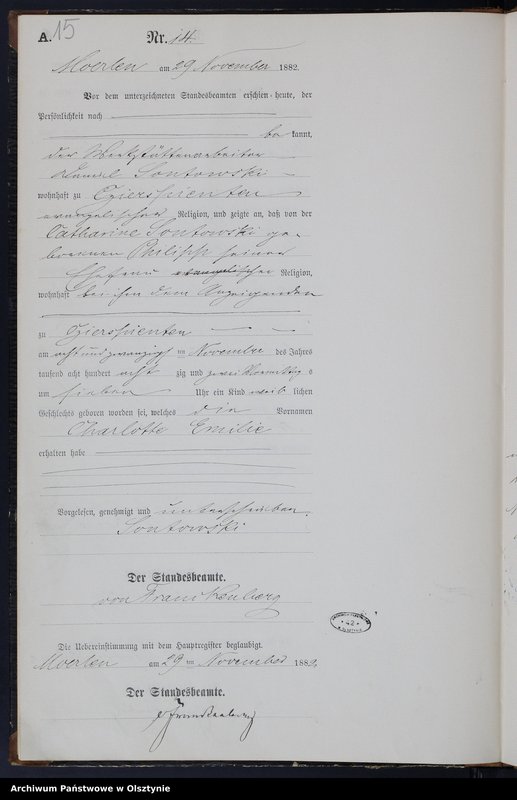 A. 15
Nr. 14.
Moerlen am 29 November 1882.
Vor dem unterzeichneten Standesbeamten erschien heute, der
Persönlichkeit nach
be kannt,
der Werkstättenarbeiter
Sontowski
wohnhaft zu Czierspienten
evangelischer Religion, und zeigte an, daß von der
Catharine Sontowski ge-
borenen Philipp seiner
Ehefrau evangelischer Religion,
wohnhaft bei ihm dem Anzeigenden
zu Czierspienten
am acht und zwanzigsten November des Jahres
tausend acht hundert acht zig und zwei Vormittag s
um sieben Uhr ein Kind weib lichen
Geschlechts geboren worden sei, welches die Vornamen
Charlotte Emilie
erhalten habe
Vorgelesen, genehmigt und unterschrieben.
Sontowski
Der Standesbeamte.
von Franckenberg
Die Uebereinstimmung mit dem Hauptregister beglaubigt.
Moerlen am 29 ten November 1882.
Der Standesbeamte.
v Franckenberg
Archiwum Państwowe w Olsztynie